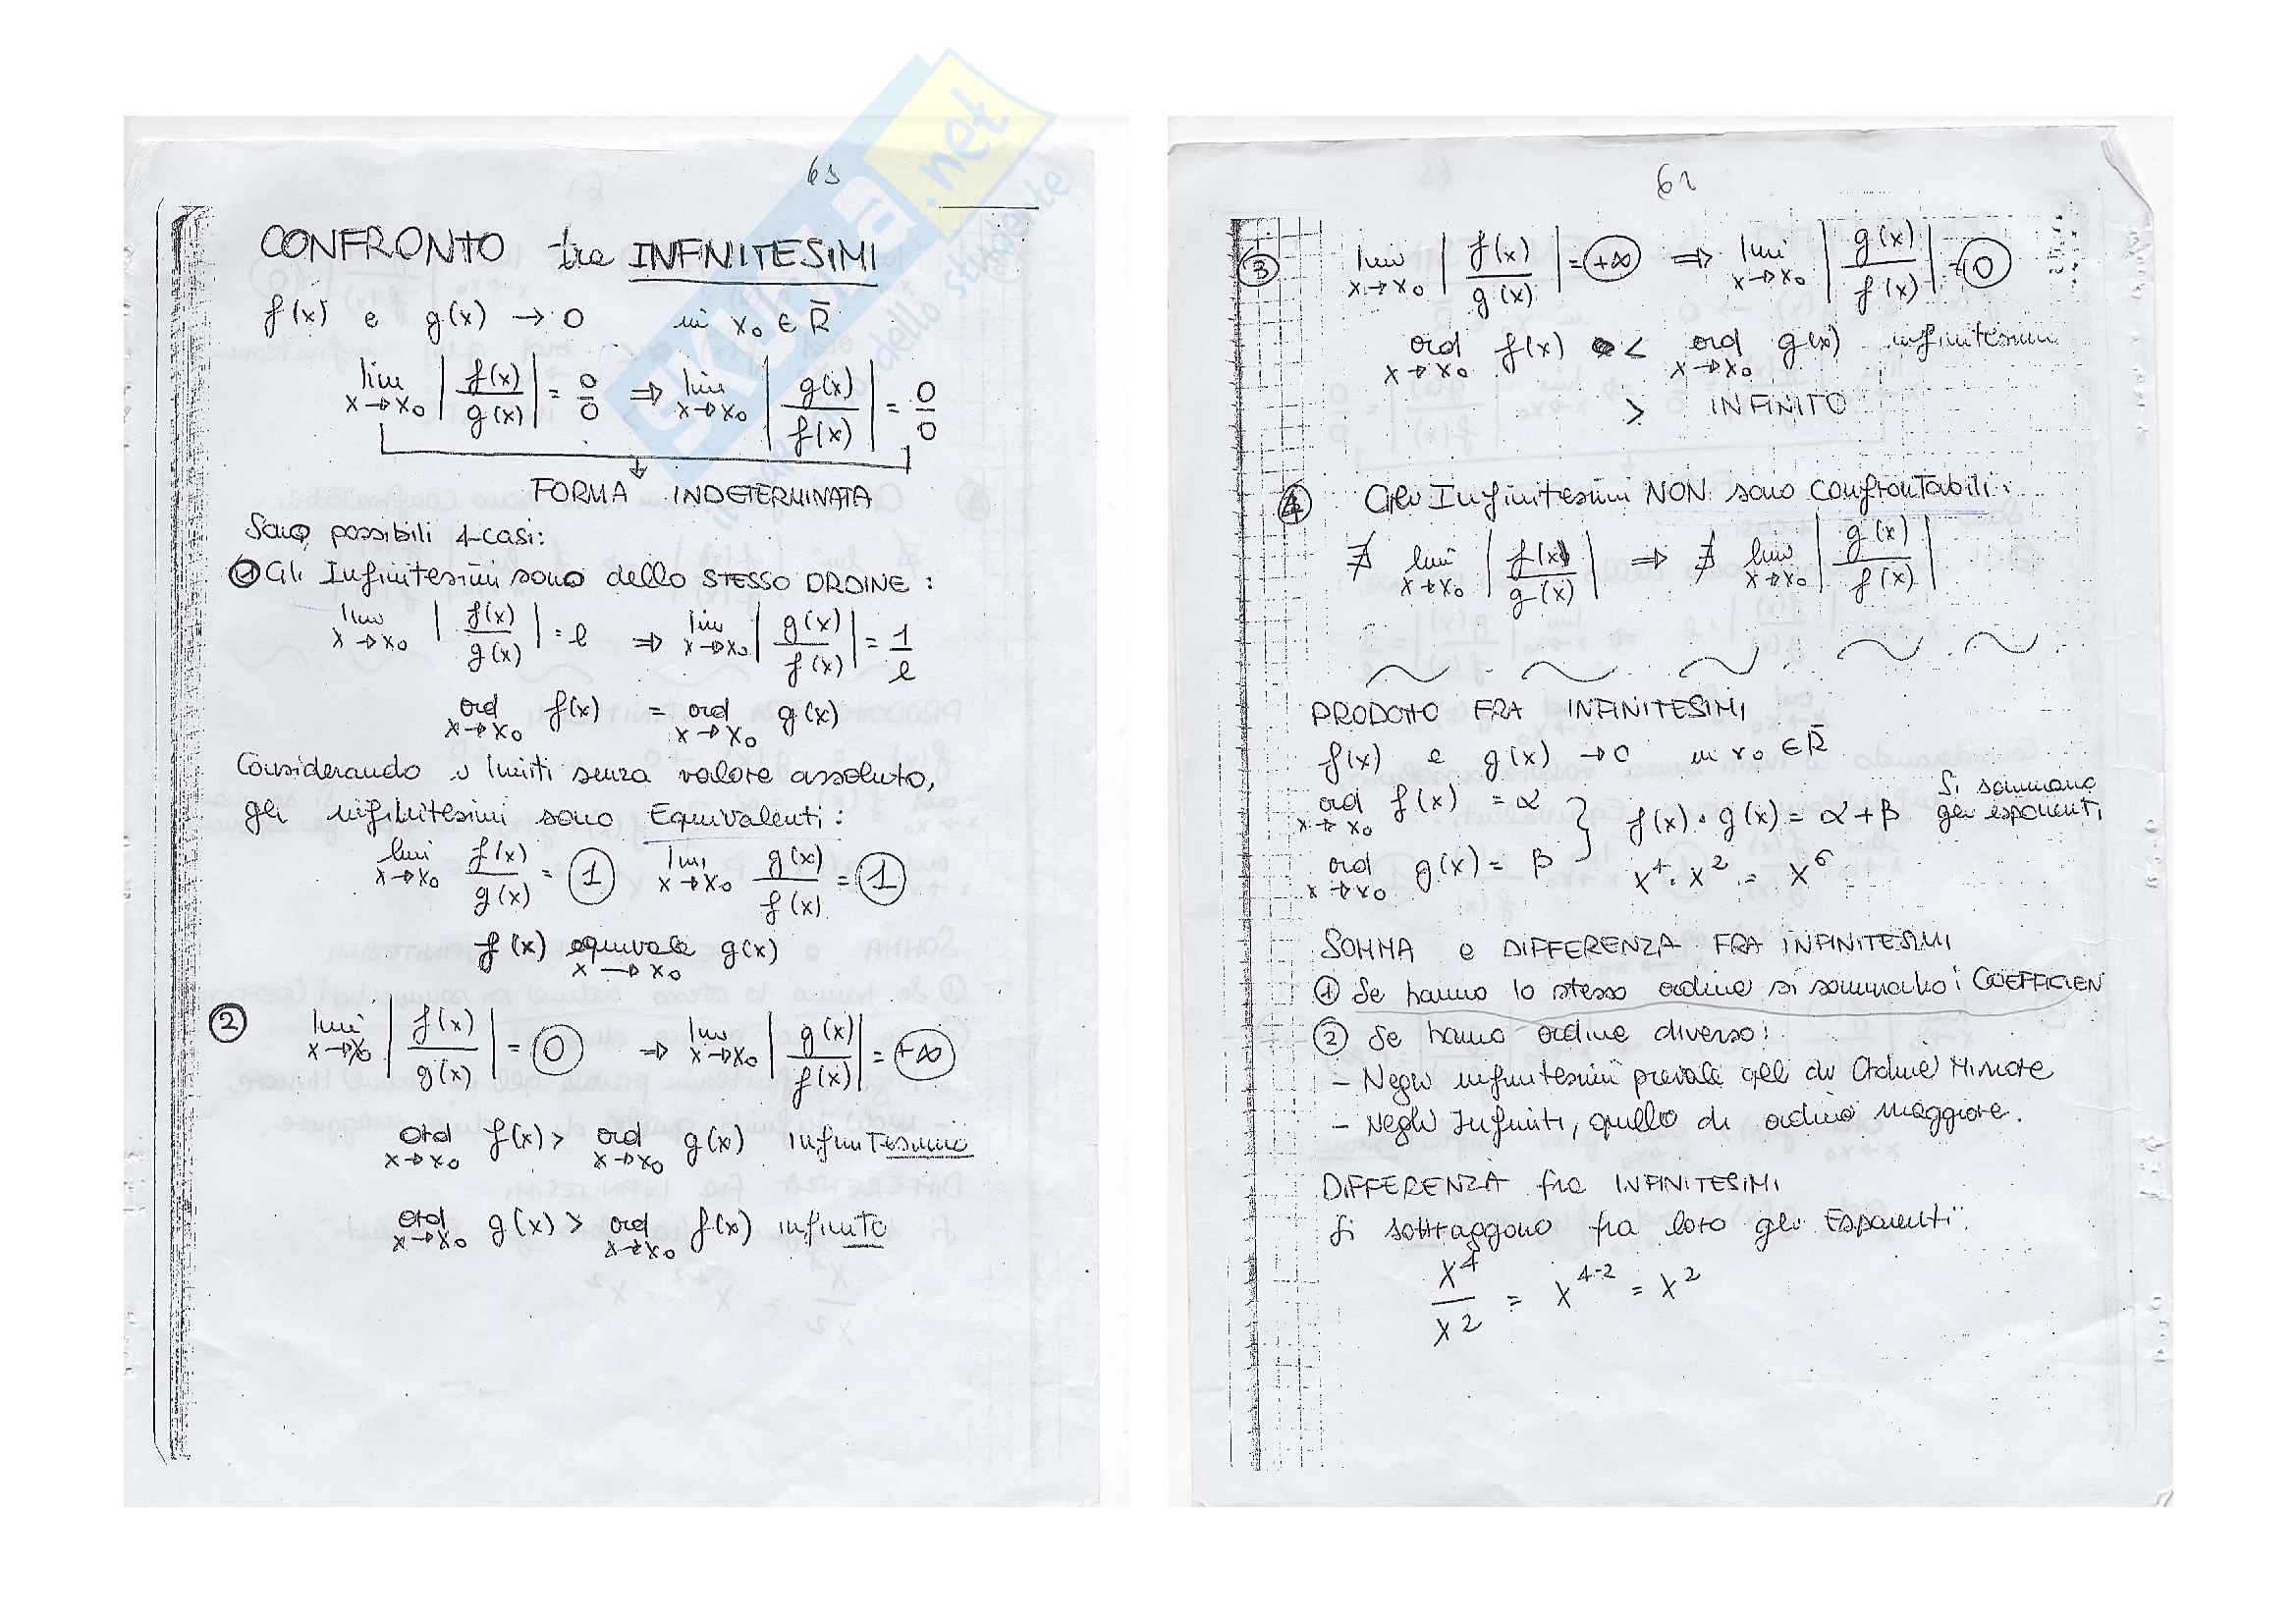 63
CONFRONTO tra INFINITESIMI
f(x) e g(x) → 0 in x₀ ∈ R̄
lim x→x₀ |f(x)/g(x)| = 0/0 ⇒ lim x→x₀ |g(x)/f(x)| = 0/0
FORMA INDETERMINATA
Sono possibili 4 casi:
① Gli Infinitesimi sono dello STESSO ORDINE :
lim x→x₀ |f(x)/g(x)| = l ⇒ lim x→x₀ |g(x)/f(x)| = 1/l
ord x→x₀ f(x) = ord x→x₀ g(x)
Considerando i limiti senza valore assoluto,
gli infinitesimi sono Equivalenti :
lim x→x₀ f(x)/g(x) = 1 lim x→x₀ g(x)/f(x) = 1
f(x) equivale x→x₀ g(x)
② lim x→x₀ |f(x)/g(x)| = 0 ⇒ lim x→x₀ |g(x)/f(x)| = +∞
ord x→x₀ f(x) > ord x→x₀ g(x) infinitesimo
ord x→x₀ g(x) > ord x→x₀ f(x) infinito
SKUOLA.net
③ lim x→x₀ |f(x)/g(x)| = +∞ ⇒ lim x→x₀ |g(x)/f(x)| = 0
ord x→x₀ f(x) < ord x→x₀ g(x) infinitesimi
> INFINITO
④ Gli Infinitesimi NON sono confrontabili :
∄ lim x→x₀ |f(x)/g(x)| ⇒ ∄ lim x→x₀ |g(x)/f(x)|
PRODOTTO FRA INFINITESIMI
f(x) e g(x) → 0 in x₀ ∈ R̄
ord x→x₀ f(x) = α
ord x→x₀ g(x) = β
} f(x) · g(x) = α + β Si sommano gli esponenti
x⁴ · x² = x⁶
SOMMA e DIFFERENZA FRA INFINITESIMI
① Se hanno lo stesso ordine si sommano i COEFFICIEN
② Se hanno ordine diverso :
– Negli infinitesimi prevale gli di Ordine Minore
– Negli Infiniti, quello di ordine maggiore.
DIFFERENZA fra INFINITESIMI
Si sottraggono fra loro gli Esponenti.
x⁴/x² = x⁴⁻² = x²